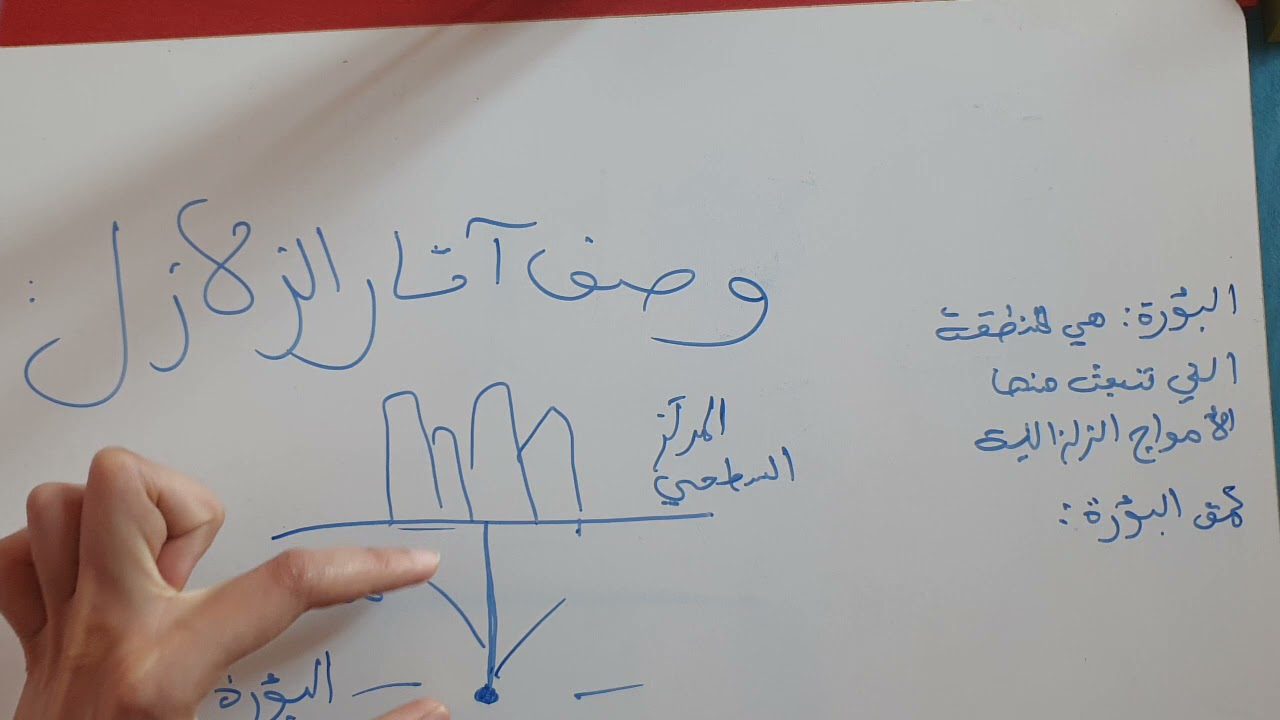 وصف آثار الزلازل :
البؤرة : هي المنطقة
التي تنبعث منها
الأمواج الزلزالية
عمق البؤرة :
المركز
السطحي
البؤرة